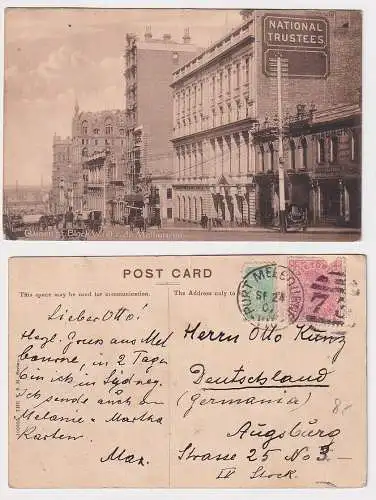 NATIONAL
TRUSTEES
POST CARD
This space may be used for communication.
The Address only to
PORT MELBOURNE
SE 24
Lieber Otto!
Hzgl. Gruss aus Mel
bourne, in 2 Tagen
bin ich in Sydney.
Ich sende auch an
Melanie u Martha
Karten.
Max.
Herrn Otto Kunz
Deutschland
(Germania)
Augsburg
Strasse 25 No 3.
IV Stock.
8.-